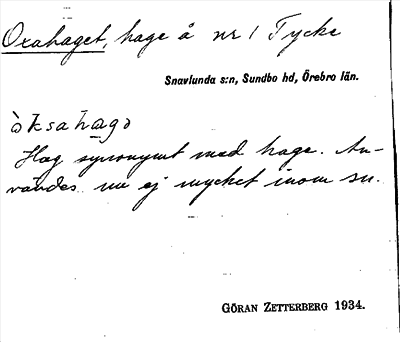 Oxahaget, hage å nr 1 Tycke
Snavlunda s:n, Sundbo hd, Örebro län.
òksahagə
Hag synonymt med hage. An-
vändes nu ej mycket inom sn.
GÖRAN ZETTERBERG 1934.